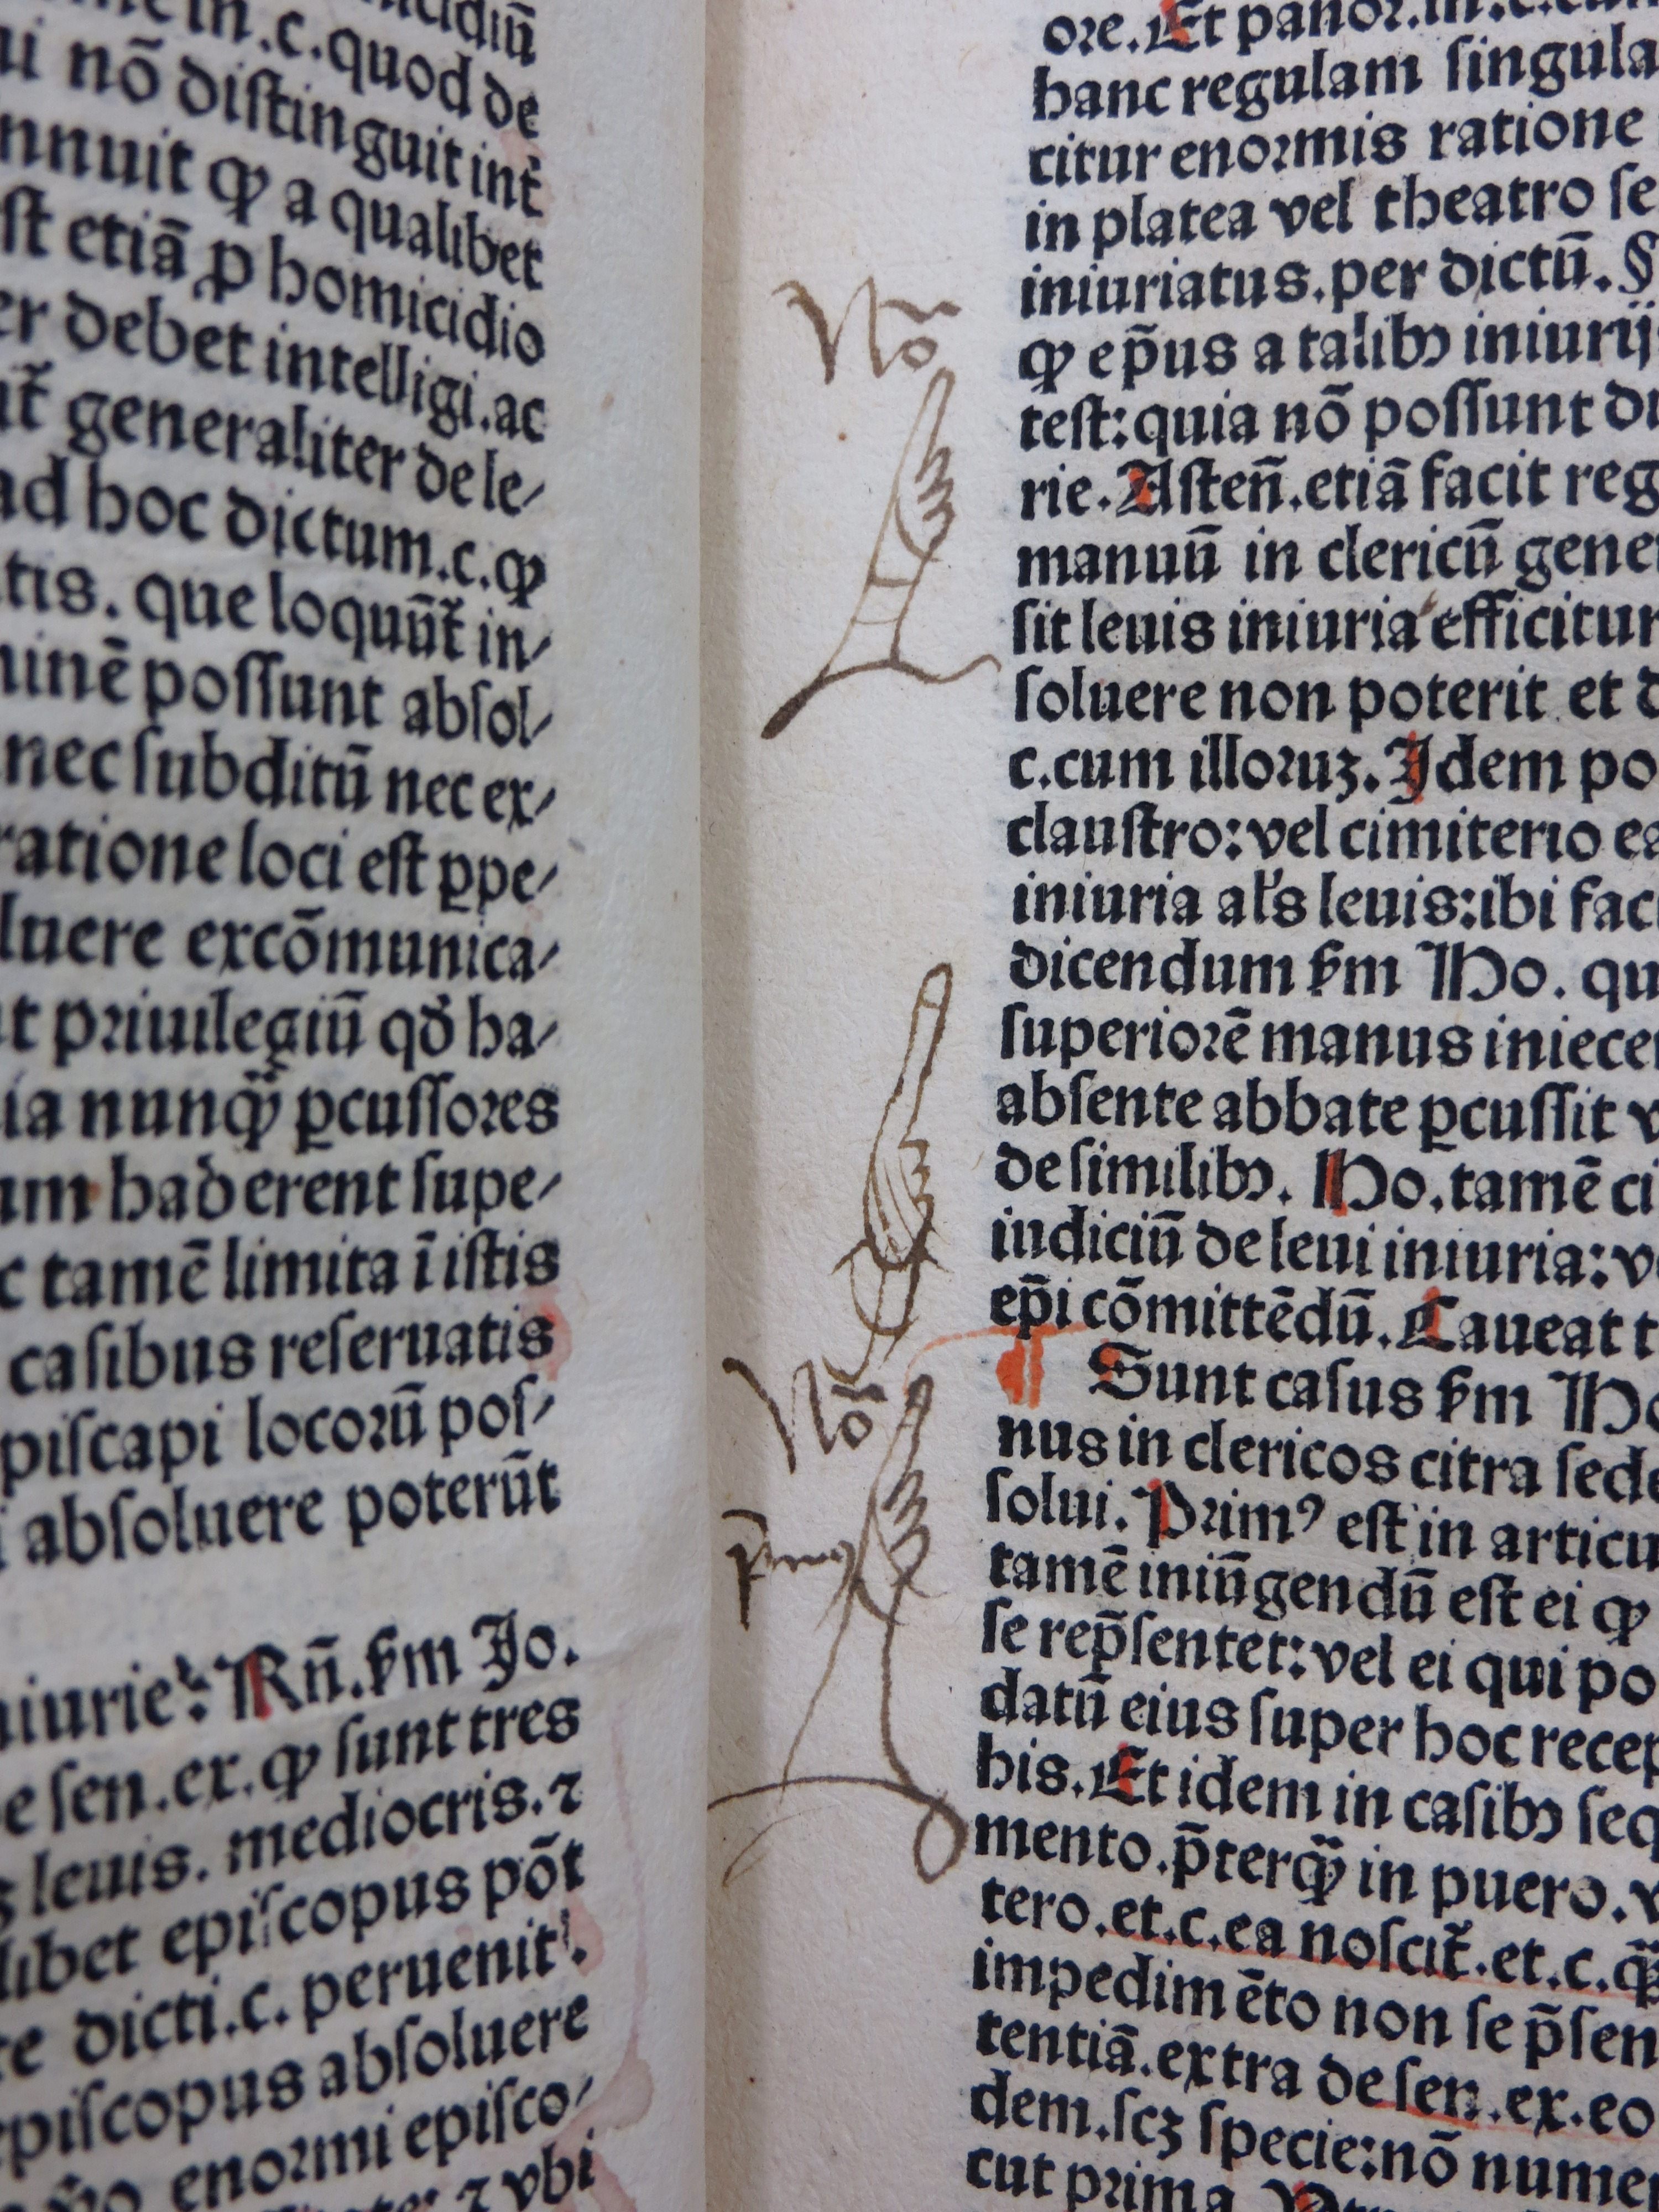 .c.quod de
nõ diſtinguit int̃
nnuit ꝙ a qualibet
etiã ꝓ homicidio
debet intelligi.ac
generaliter de le⸗
ad hoc dictum.c.ꝙ
que loquũt̃ in⸗
poſſunt abſol⸗
nec ſubditũ nec ex⸗
ratione loci eſt ꝑpe⸗
luere excõmunica⸗
priuilegiũ qð ha⸗
nunꝙ̃ ꝑcuſſores
haberent ſupe⸗
tamẽ limita ĩ iſtis
caſibus reſeruatis
piſcapi locorũ poſ⸗
abſoluere poterũt
niurie: Rñ.ẜm Jo.
ſen.ex.ꝙ ſunt tres
leuis. mediocris.⁊
libet epiſcopus põt
dicti.c. peruenit.
piſcopus abſoluere
enormi epiſco⸗
⁊ vbi
Nõ
Nõ
p̃mꝰ
ore.Et panor.
hanc regulam ſingula
citur enormis ratione
in platea vel theatro ſe
iniuriatus.per dictũ.§
ꝙ ep̃us a talibꝰ iniurij
teſt:quia nõ poſſunt
rie.Aſteñ.etiã facit reg
manuũ in clericũ gene
ſit leuis iniuria efficitur
ſoluere non poterit et
c.cum illoruꝫ.Idem po
clauſtro:vel cimiterio
iniuria al's leuis:ibi fac
dicendum ẜm Ho. qu
ſuperiorẽ manus iniece
abſente abbate ꝑcuſſit v
de ſimilibꝰ. Ho.tamẽ ci
iudiciũ de leui iniuria:v
ep̃i cõmittẽdũ.Caueat t
¶ Sunt caſus ẜm Ho
nus in clericos citra ſede
ſolui.Primꝰ eſt in articu
tamẽ iniũgendũ eſt ei ꝙ
ſe rep̃ſentet:vel ei qui po
datũ eius ſuper hoc recep
his.Et idem in caſibꝰ ſeq
mento.p̃terꝙ̃ in puero.v
tero.et.c.ea noſcit̃.et.c.ꝙ̃
impedimẽto non ſe p̃ſen
tentiã.extra de ſen.ex.eo
dem.ſcꝫ ſpecie:nõ nume
cut prima.